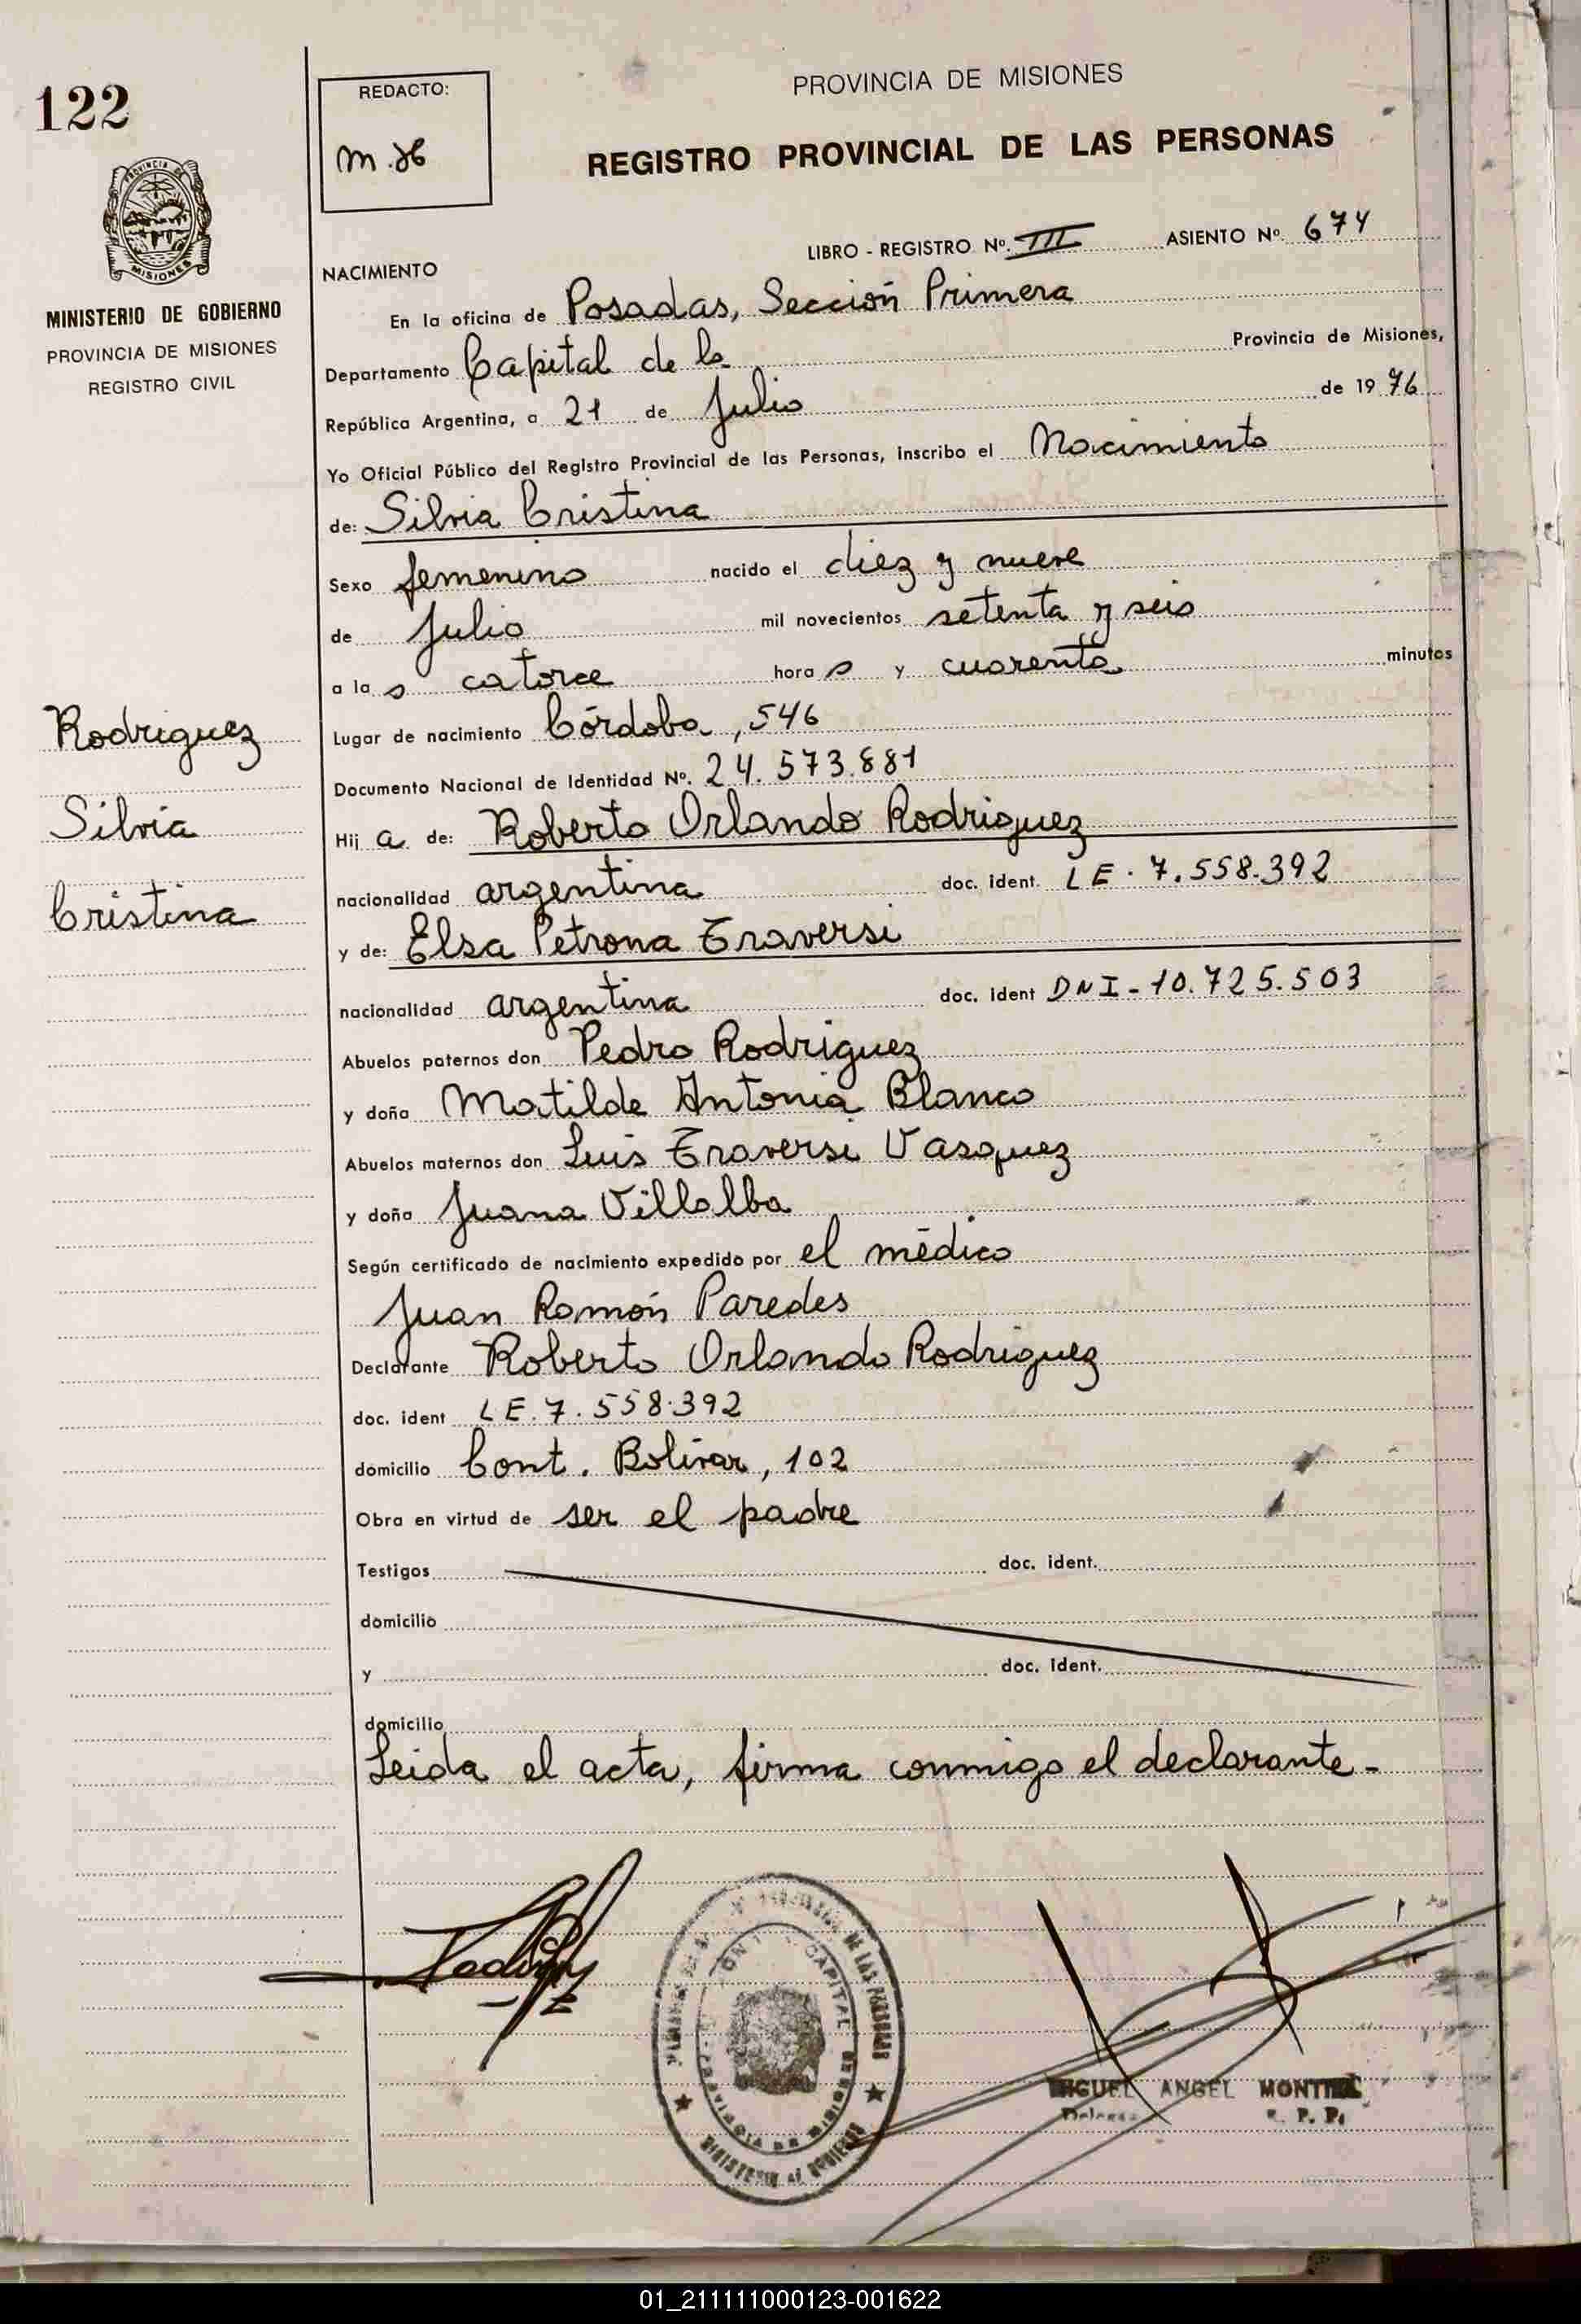 122
REDACTO:
PROVINCIA DE MISIONES
REGISTRO PROVINCIAL DE LAS PERSONAS
PROVINCIA DE
MISIONES
MINISTERIO DE GOBIERNO
PROVINCIA DE MISIONES
REGISTRO CIVIL
LIBRO - REGISTRO Nº. III ASIENTO Nº. 674
NACIMIENTO
En la oficina de Posadas, Sección Primera
Departamento Capital de la Provincia de Misiones,
República Argentina, a 21 de Julio de 1976
Yo Oficial Público del Registro Provincial de las Personas, inscribo el Nacimiento
de: Silvia Cristina
Sexo femenino nacido el diez y nueve
de Julio mil novecientos setenta y seis
a las catorce horas y cuarenta minutos
Lugar de nacimiento Córdoba, 546
Documento Nacional de Identidad Nº. 24.573.881
Hija de: Roberto Orlando Rodriguez
nacionalidad argentina doc. ident. LE. 7.558.392
y de: Elsa Petrona Traversi
nacionalidad argentina doc. ident DNI-10.725.503
Abuelos paternos don Pedro Rodriguez
y doña Matilde Antonia Blanco
Abuelos maternos don Luis Traversi Vasquez
y doña Juana Villalba
Según certificado de nacimiento expedido por el médico
Juan Ramón Paredes
Declarante Roberto Orlando Rodriguez
doc. ident LE. 7.558.392
domicilio Cont. Bolivar, 102
Obra en virtud de ser el padre
Testigos doc. ident.
domicilio
y doc. ident.
domicilio
Leida el acta, firma conmigo el declarante-
Rodriguez
Silvia
Cristina
DE LAS PERSONAS
CAPITAL
PROVINCIA DE MISIONES
MINISTERIO DE GOBIERNO
MIGUEL ANGEL MONTIEL
01_211111000123-001622